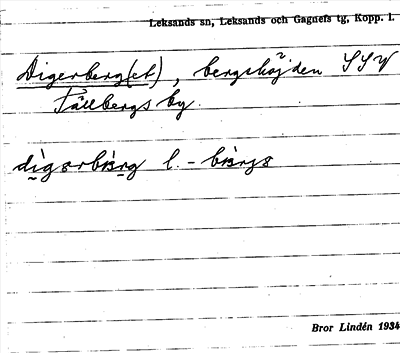 Leksands sn, Leksands och Gagnefs tg, Kopp. l.
Digerberg(et), bergshöjden SSV
Tällbergs by.
l. -
Bror Lindén 1934